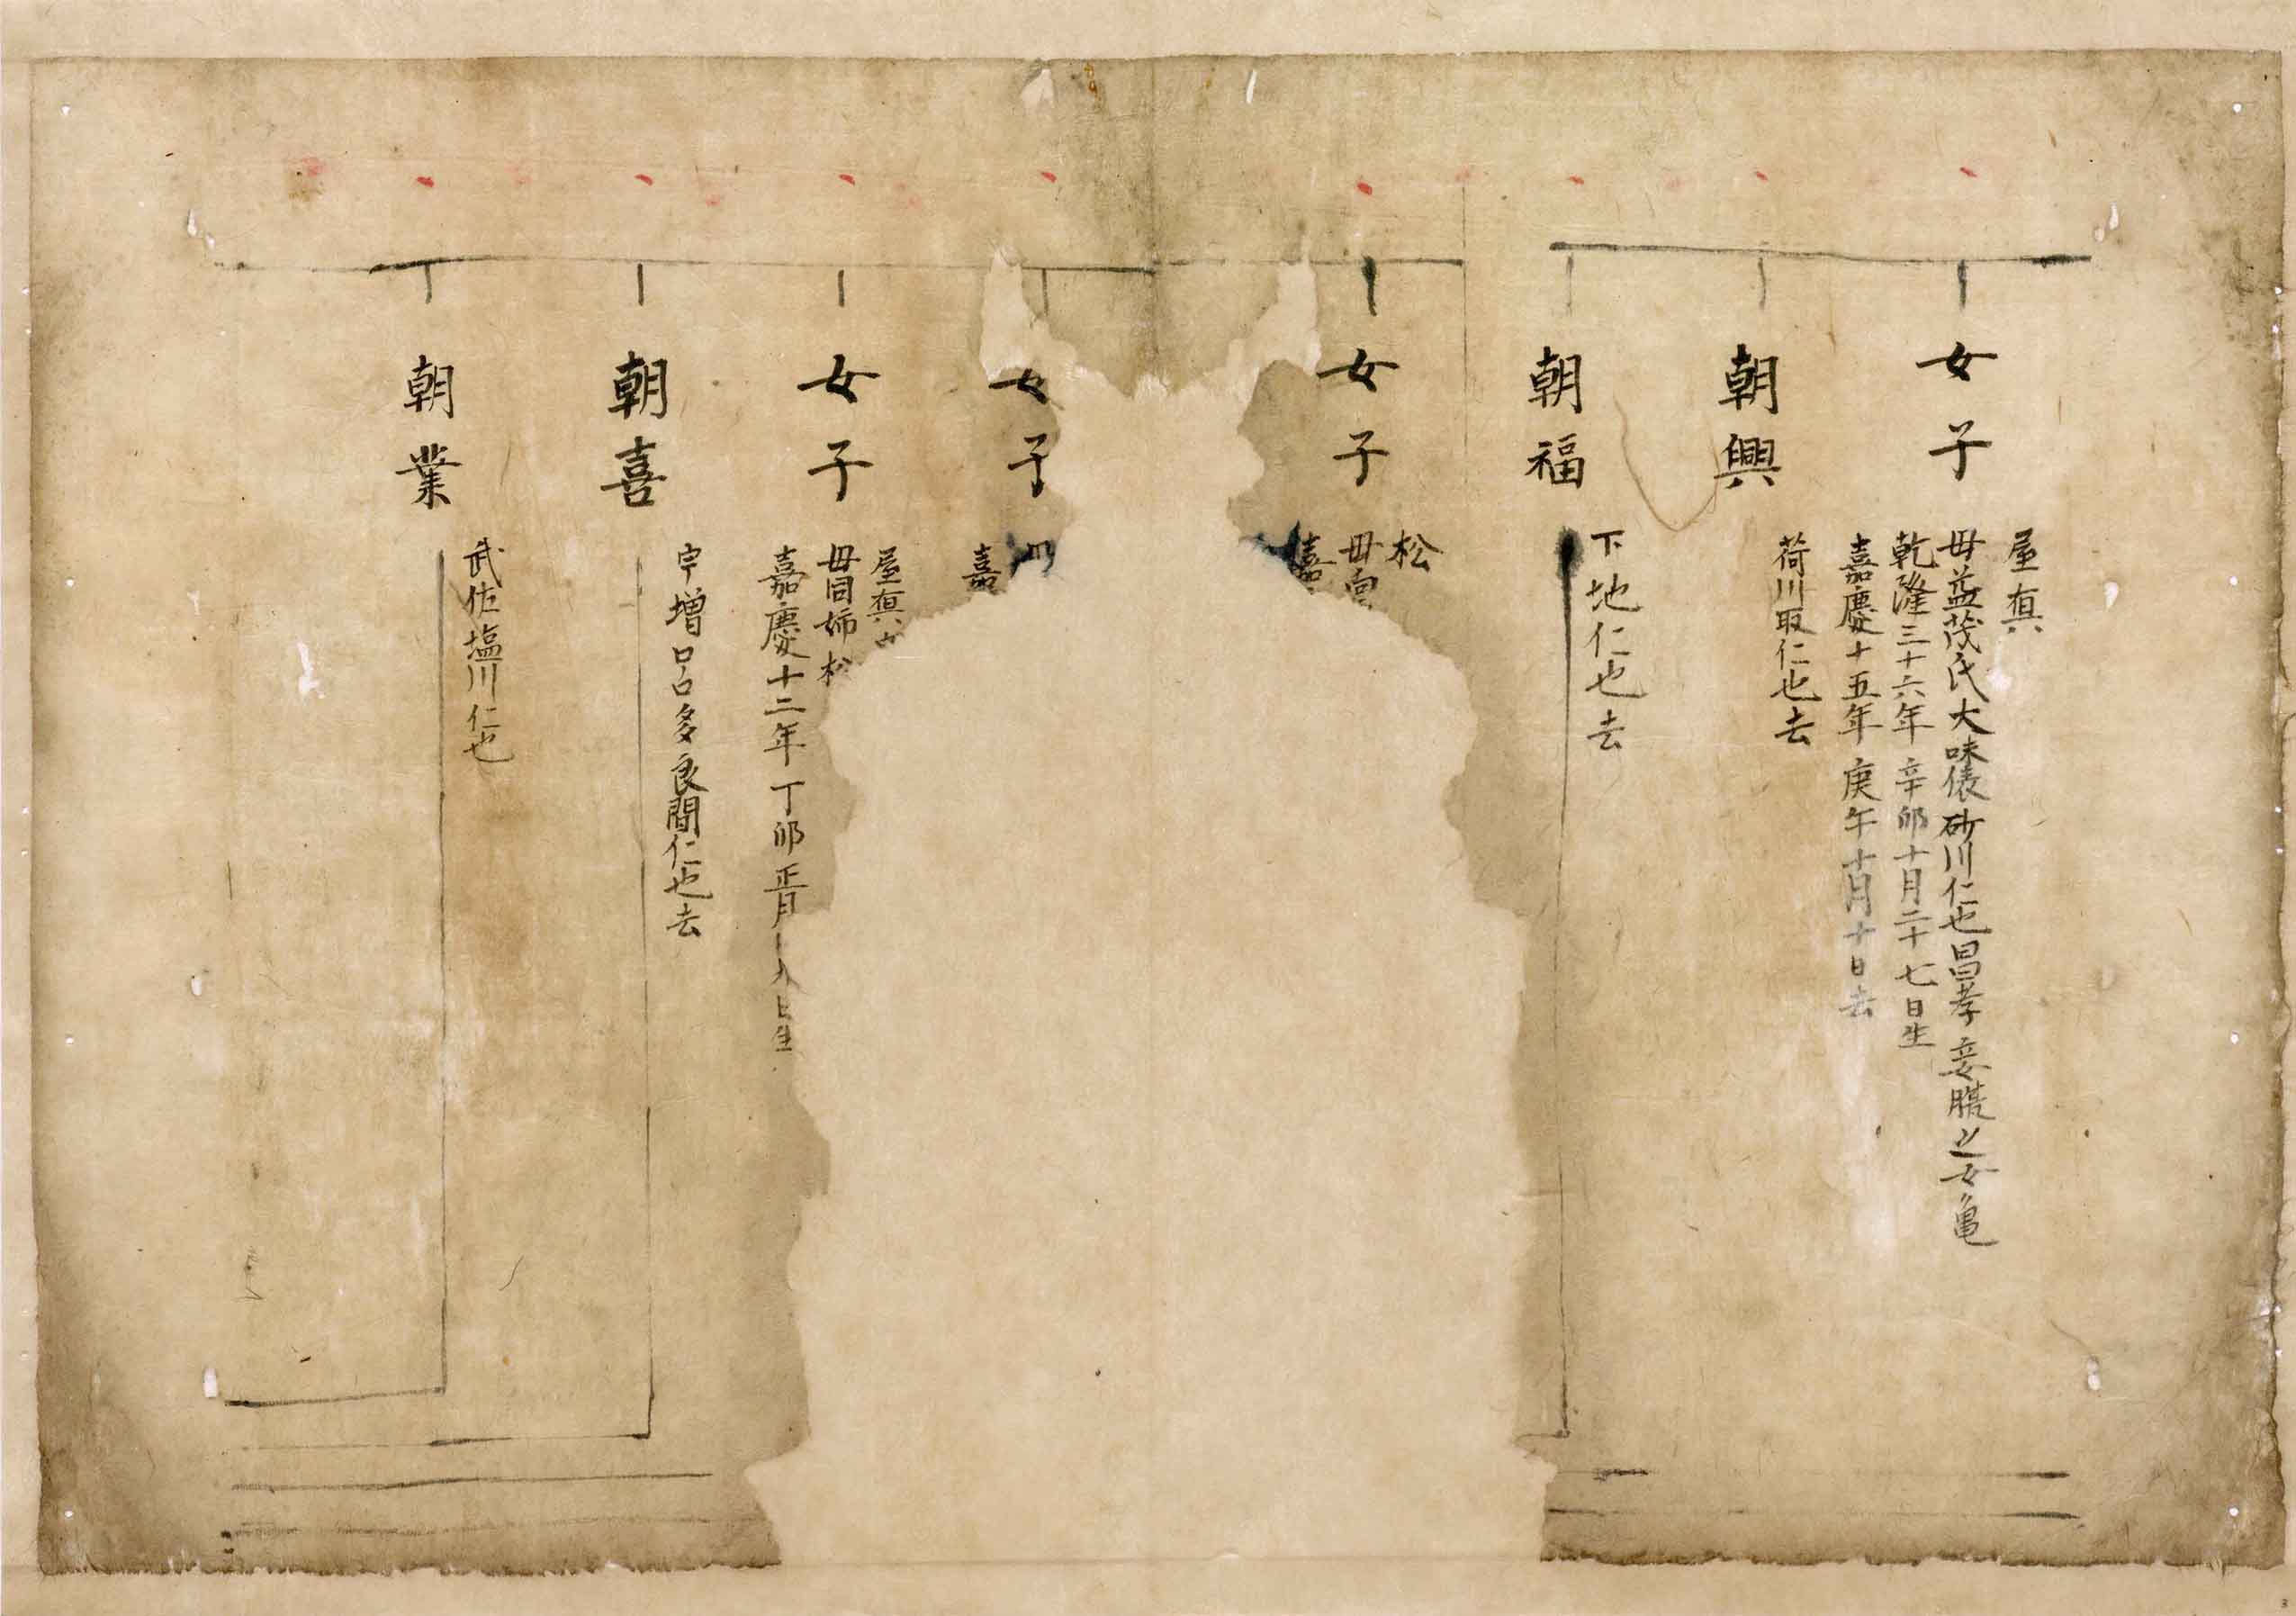 女子
屋真
母益茂氏大味俵砂川仁也昌孝妾腹之女亀
乾隆三十六年辛卯十月二十七日生
嘉慶十五年庚午十月十日去
朝興
荷川取仁也去
朝福
下地仁也去
女子
松
母
嘉
女子
嘉
女子
屋真
母同姉松
嘉慶十二年丁卯正月日生
朝喜
増多良間仁也去
朝業
武佐塩川仁也